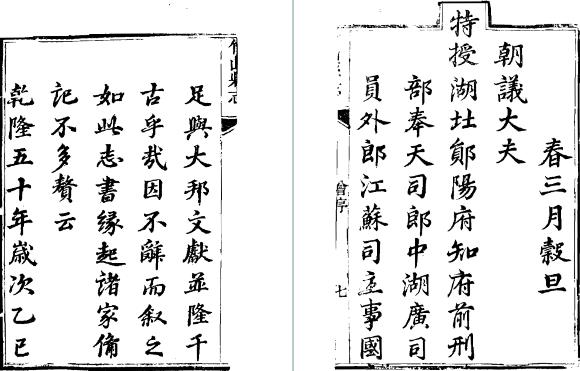 足與大邦文獻並隆千
古乎哉因不辭而叙之
如此志書緣起諸家備
記不多贅云
乾隆五十年歲次乙巳
竹山縣志
春三月穀旦
朝議大夫
特授湖北鄖陽府知府前刑
部奉天司郎中湖廣司
員外郎江蘇司主事國
曾序
七